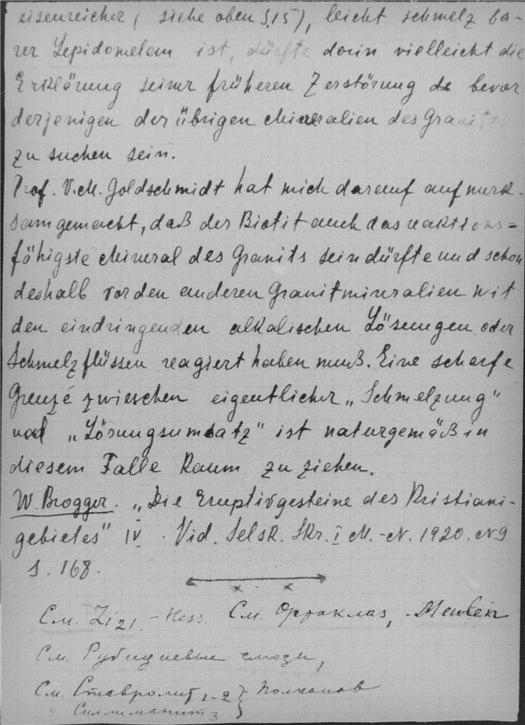 eisenreicher (siehe oben S 15), leicht schmelz ba-
rer Lepidomelan ist, dürfte darin vielleicht die
Erklärung seiner früheren Zerstörung bevor
derjenigen der übrigen Mineralien des Granits
zu suchen sein.
Prof. V. M. Goldschmidt hat mich darauf aufmerk-
sam gemacht, daß der Biotit auch das reaktions=
fähigste Mineral des Granits sein dürfte und schon
deshalb vor den anderen Granitmineralien mit
den eindringenden alkalischen Lösungen oder
Schmelzflüssen reagiert haben muß. Eine scharfe
Grenze zwischen eigentlicher „Schmelzung"
und „Lösungsumsatz" ist naturgemäß in
diesem Falle kaum zu ziehen.
W. Brogger. „Die Eruptivgesteine des Kristiani-
gebietes" IV. Vid. Selsk. Skr. I M.-N. 1920. N 9
S. 168.
См. Zi 21 - Hess. См. Ортоклаз,
См. Рубидиевые слюды,
См. Ставролит 1-2 } Полканов
" Силлиманит 3